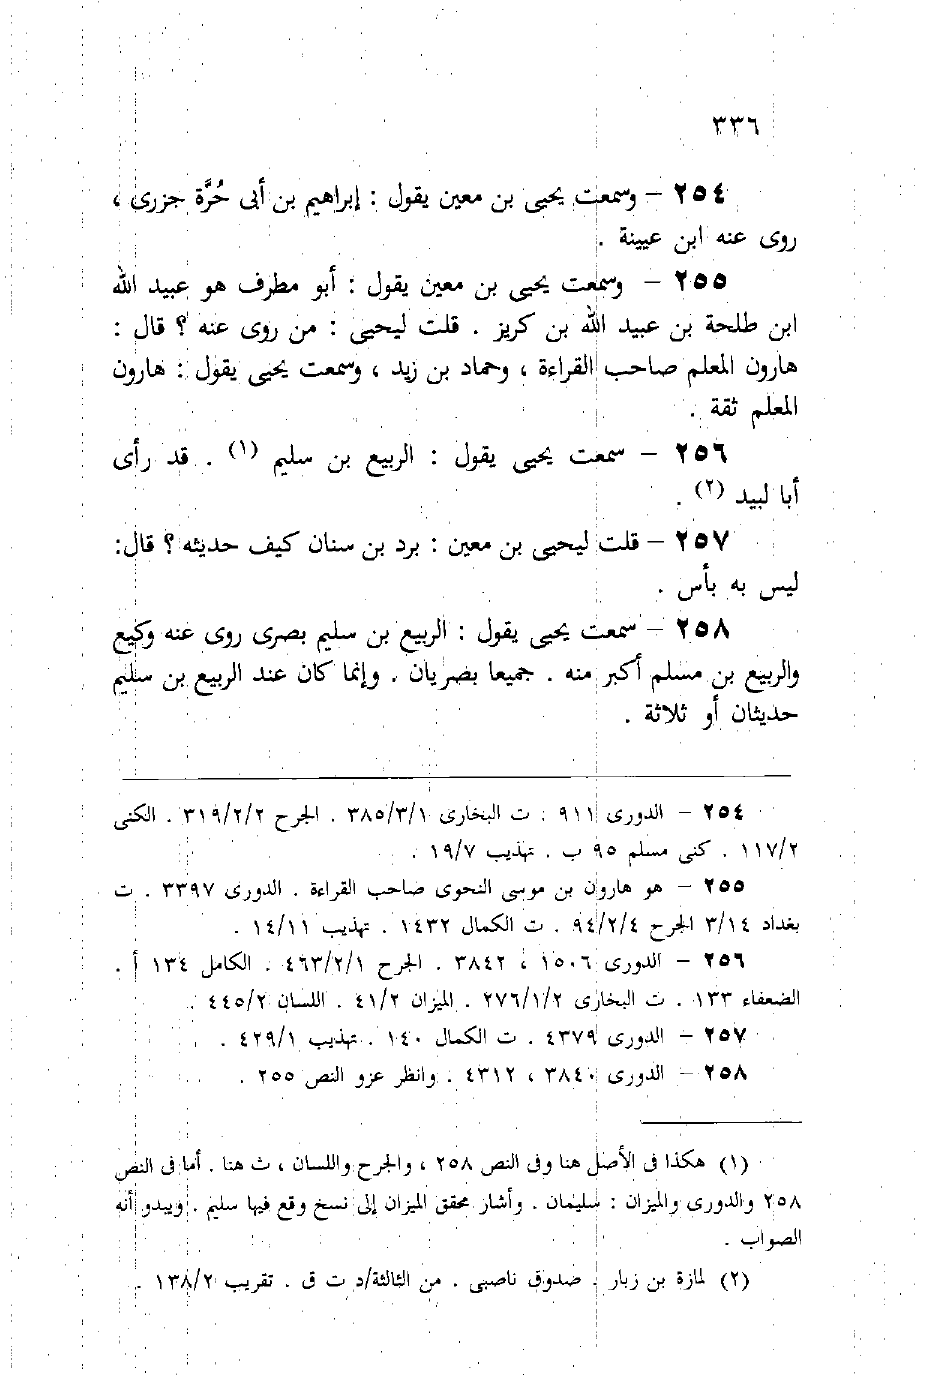 ٣٣٦
٢٥٤ – وسمعت يحيى بن معين يقول : إبراهيم بن أبى حُرَّة جزرى ،
روى عنه ابن عيينة .
٢٥٥ – وسمعت يحيى بن معين يقول : أبو مطرف هو عبيد الله
ابن طلحة بن عبيد الله بن كريز . قلت ليحيى : من روى عنه ؟ قال :
هارون المعلم صاحب القراءة ، وحماد بن زيد ، وسمعت يحيى يقول : هارون
المعلم ثقة .
٢٥٦ – سمعت يحيى يقول : الربيع بن سليم (١) . قد رأى
أبا لبيد (٢) .
٢٥٧ – قلت ليحيى بن معين : برد بن سنان كيف حديثه ؟ قال:
ليس به بأس .
٢٥٨ – سمعت يحيى يقول : الربيع بن سليم بصرى روى عنه وكيع
والربيع بن مسلم أكبر منه . جميعا بصريان . وإنما كان عند الربيع بن سليم
حديثان أو ثلاثة .
٢٥٤ – الدورى ٩١١ . ت البخارى ٣٨٥/٣/١ . الجرح ٣١٩/٢/٢ . الكنى
١١٧/٢ . كنى مسلم ٩٥ ب . تهذيب ١٩/٧ .
٢٥٥ – هو هارون بن موسى النحوى صاحب القراءة . الدورى ٣٣٩٧ . ت
بغداد ٣/١٤ الجرح ٩٤/٢/٤ . ت الكمال ١٤٣٢ . تهذيب ١٤/١١ .
٢٥٦ – الدورى ١٥٠٦ ، ٣٨٤٢ . الجرح ٤٦٣/٢/١ . الكامل ١٣٤ أ .
الضعفاء ١٣٣ . ت البخارى ٢٧٦/١/٢ . الميزان ٤١/٢ . اللسان ٤٤٥/٢ .
٢٥٧ – الدورى ٤٣٧٩ . ت الكمال ١٤٠ . تهذيب ٤٢٩/١ .
٢٥٨ – الدورى ٣٨٤٠ ، ٤٣١٢ . وانظر عزو النص ٢٥٥ .
(١) هكذا فى الأصل هنا وفى النص ٢٥٨ ، والجرح واللسان ، ث هنا . أما فى النص
٢٥٨ والدورى والميزان : سليمان . وأشار محقق الميزان إلى نسخ وقع فيها سليم . ويبدو أنه
الصواب .
(٢) لمازة بن زبار . صدوق ناصبى . من الثالثة/د ت ق . تقريب ١٣٨/٢ .